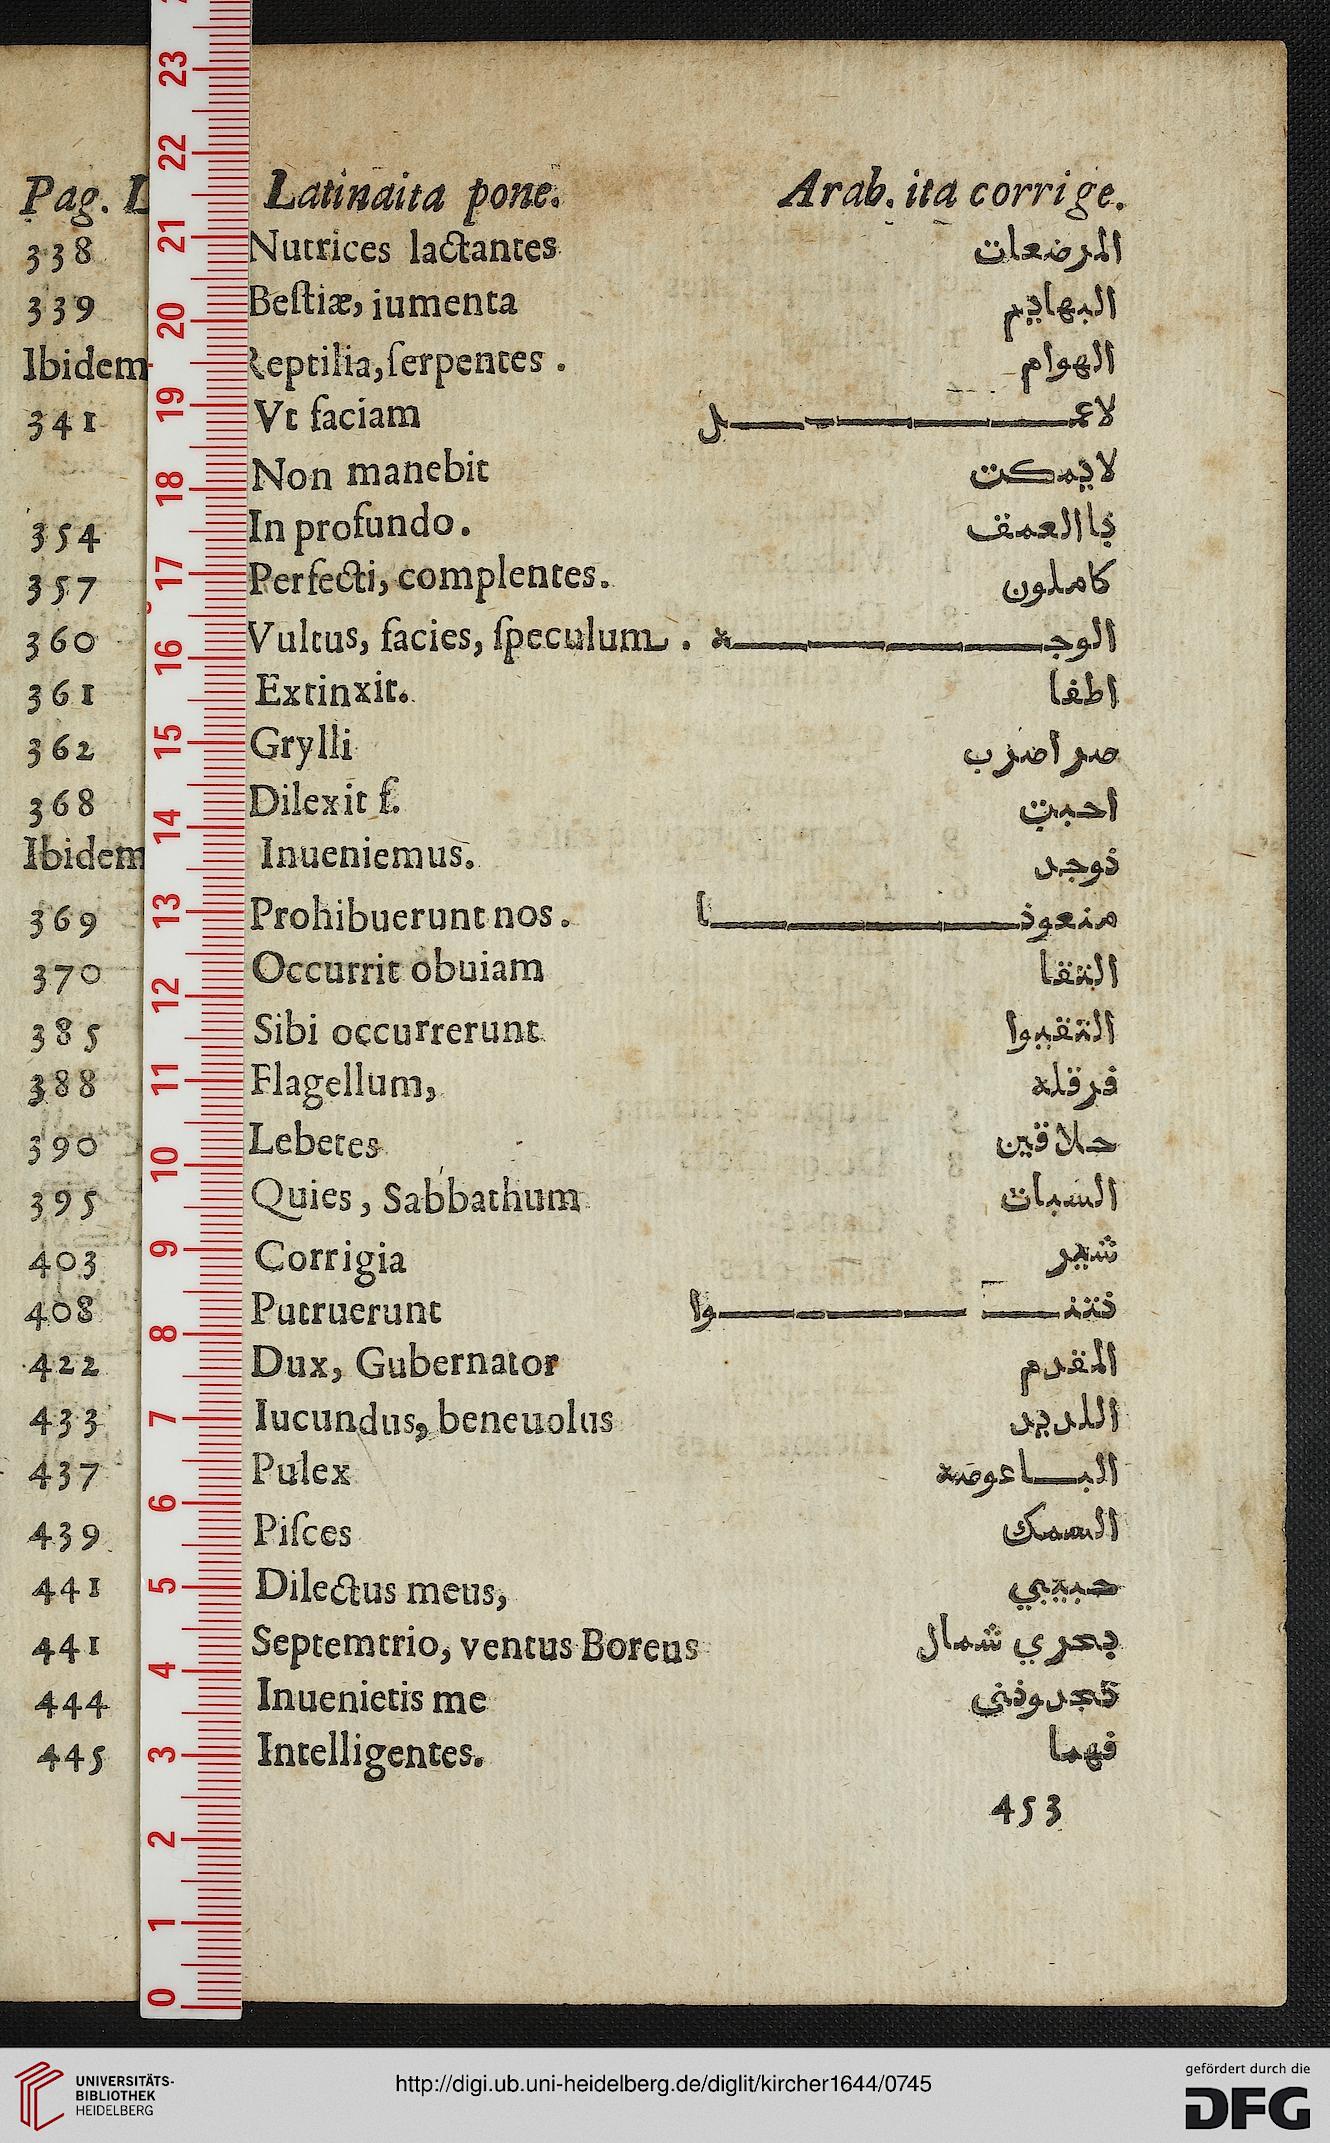 Pag. Latinaita pone. Arab. ita corrige.
338 Nutrices lactantes المرضعات
339 Bestiæ, iumenta البهايم
Ibidem Reptilia, ſerpentes . الهوام
341 Vt faciam لاعمـــــل
Non manebit لايمكت
354 In profundo. باالعمق
357 Perfecti, complentes. كاملون
360 Vultus, facies, ſpeculum . الوجـــــه
361 Extinxit. اطفا
362 Grylli
368 Dilexit ſ. احبت
Ibidem Inueniemus. نوجد
369 Prohibuerunt nos . منعونـــــا
370 Occurrit obuiam التقا
385 Sibi occurrerunt التقيوا
388 Flagellum, فرقله
390 Lebetes حلاقين
395 Quies, Sabbathum السبات
403 Corrigia شير
408 Putruerunt نتنـــــوا
422 Dux, Gubernator المقدم
433 Iucundus, beneuolus اللديد
437 Pulex البـــاعوضه
439 Piſces السمك
441 Dilectus meus, حبيبي
441 Septemtrio, ventus Boreus بحري شمال
444 Inuenietis me تجدونني
445 Intelligentes. فهما
453
23
22
21
20
19
18
17
16
15
14
13
12
11
10
9
8
7
6
5
4
3
2
1
0
UNIVERSITÄTS-
BIBLIOTHEK
HEIDELBERG
http://digi.ub.uni-heidelberg.de/diglit/kircher1644/0745
gefördert durch die
DFG